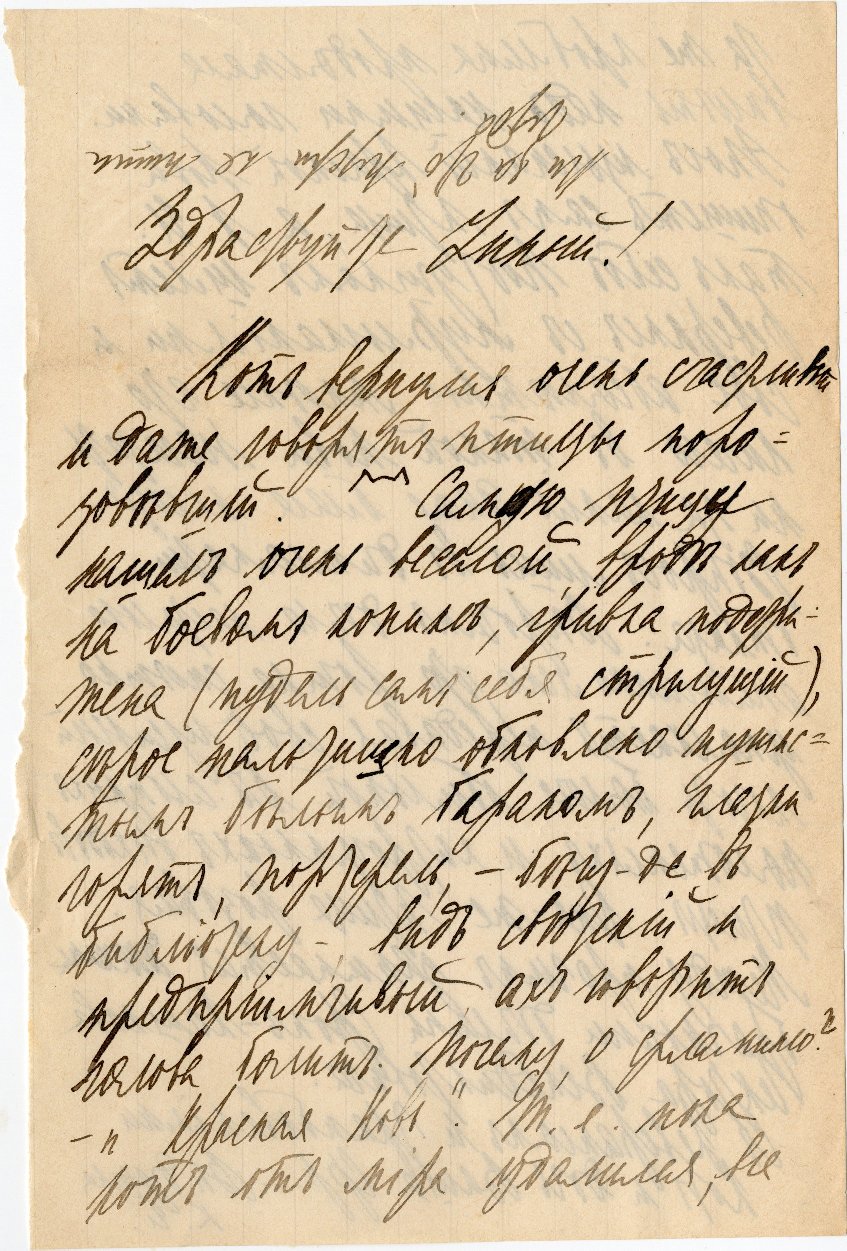 Здраствуйте Милый!
Котъ вернулся очень счастливый
и даже говорятъ птицы поро=
зовѣвшій. Самую птицу
нашелъ очень веселой вродѣ какъ
на боевомъ конькѣ, гривка подстри-
жена (пудель самъ себя стригущій),
сѣрое пальтишко обновлено пушис=
тымъ бѣлымъ бараномъ, глазки
горятъ, портфель, – бѣгу-де въ
библіотеку –, видъ свѣтскій и
предпріимчивый, ахъ говоритъ
голова болитъ. Почему, о фламинго?
– „Красная Новь". Т. е. пока
котъ отъ міра удалился, все